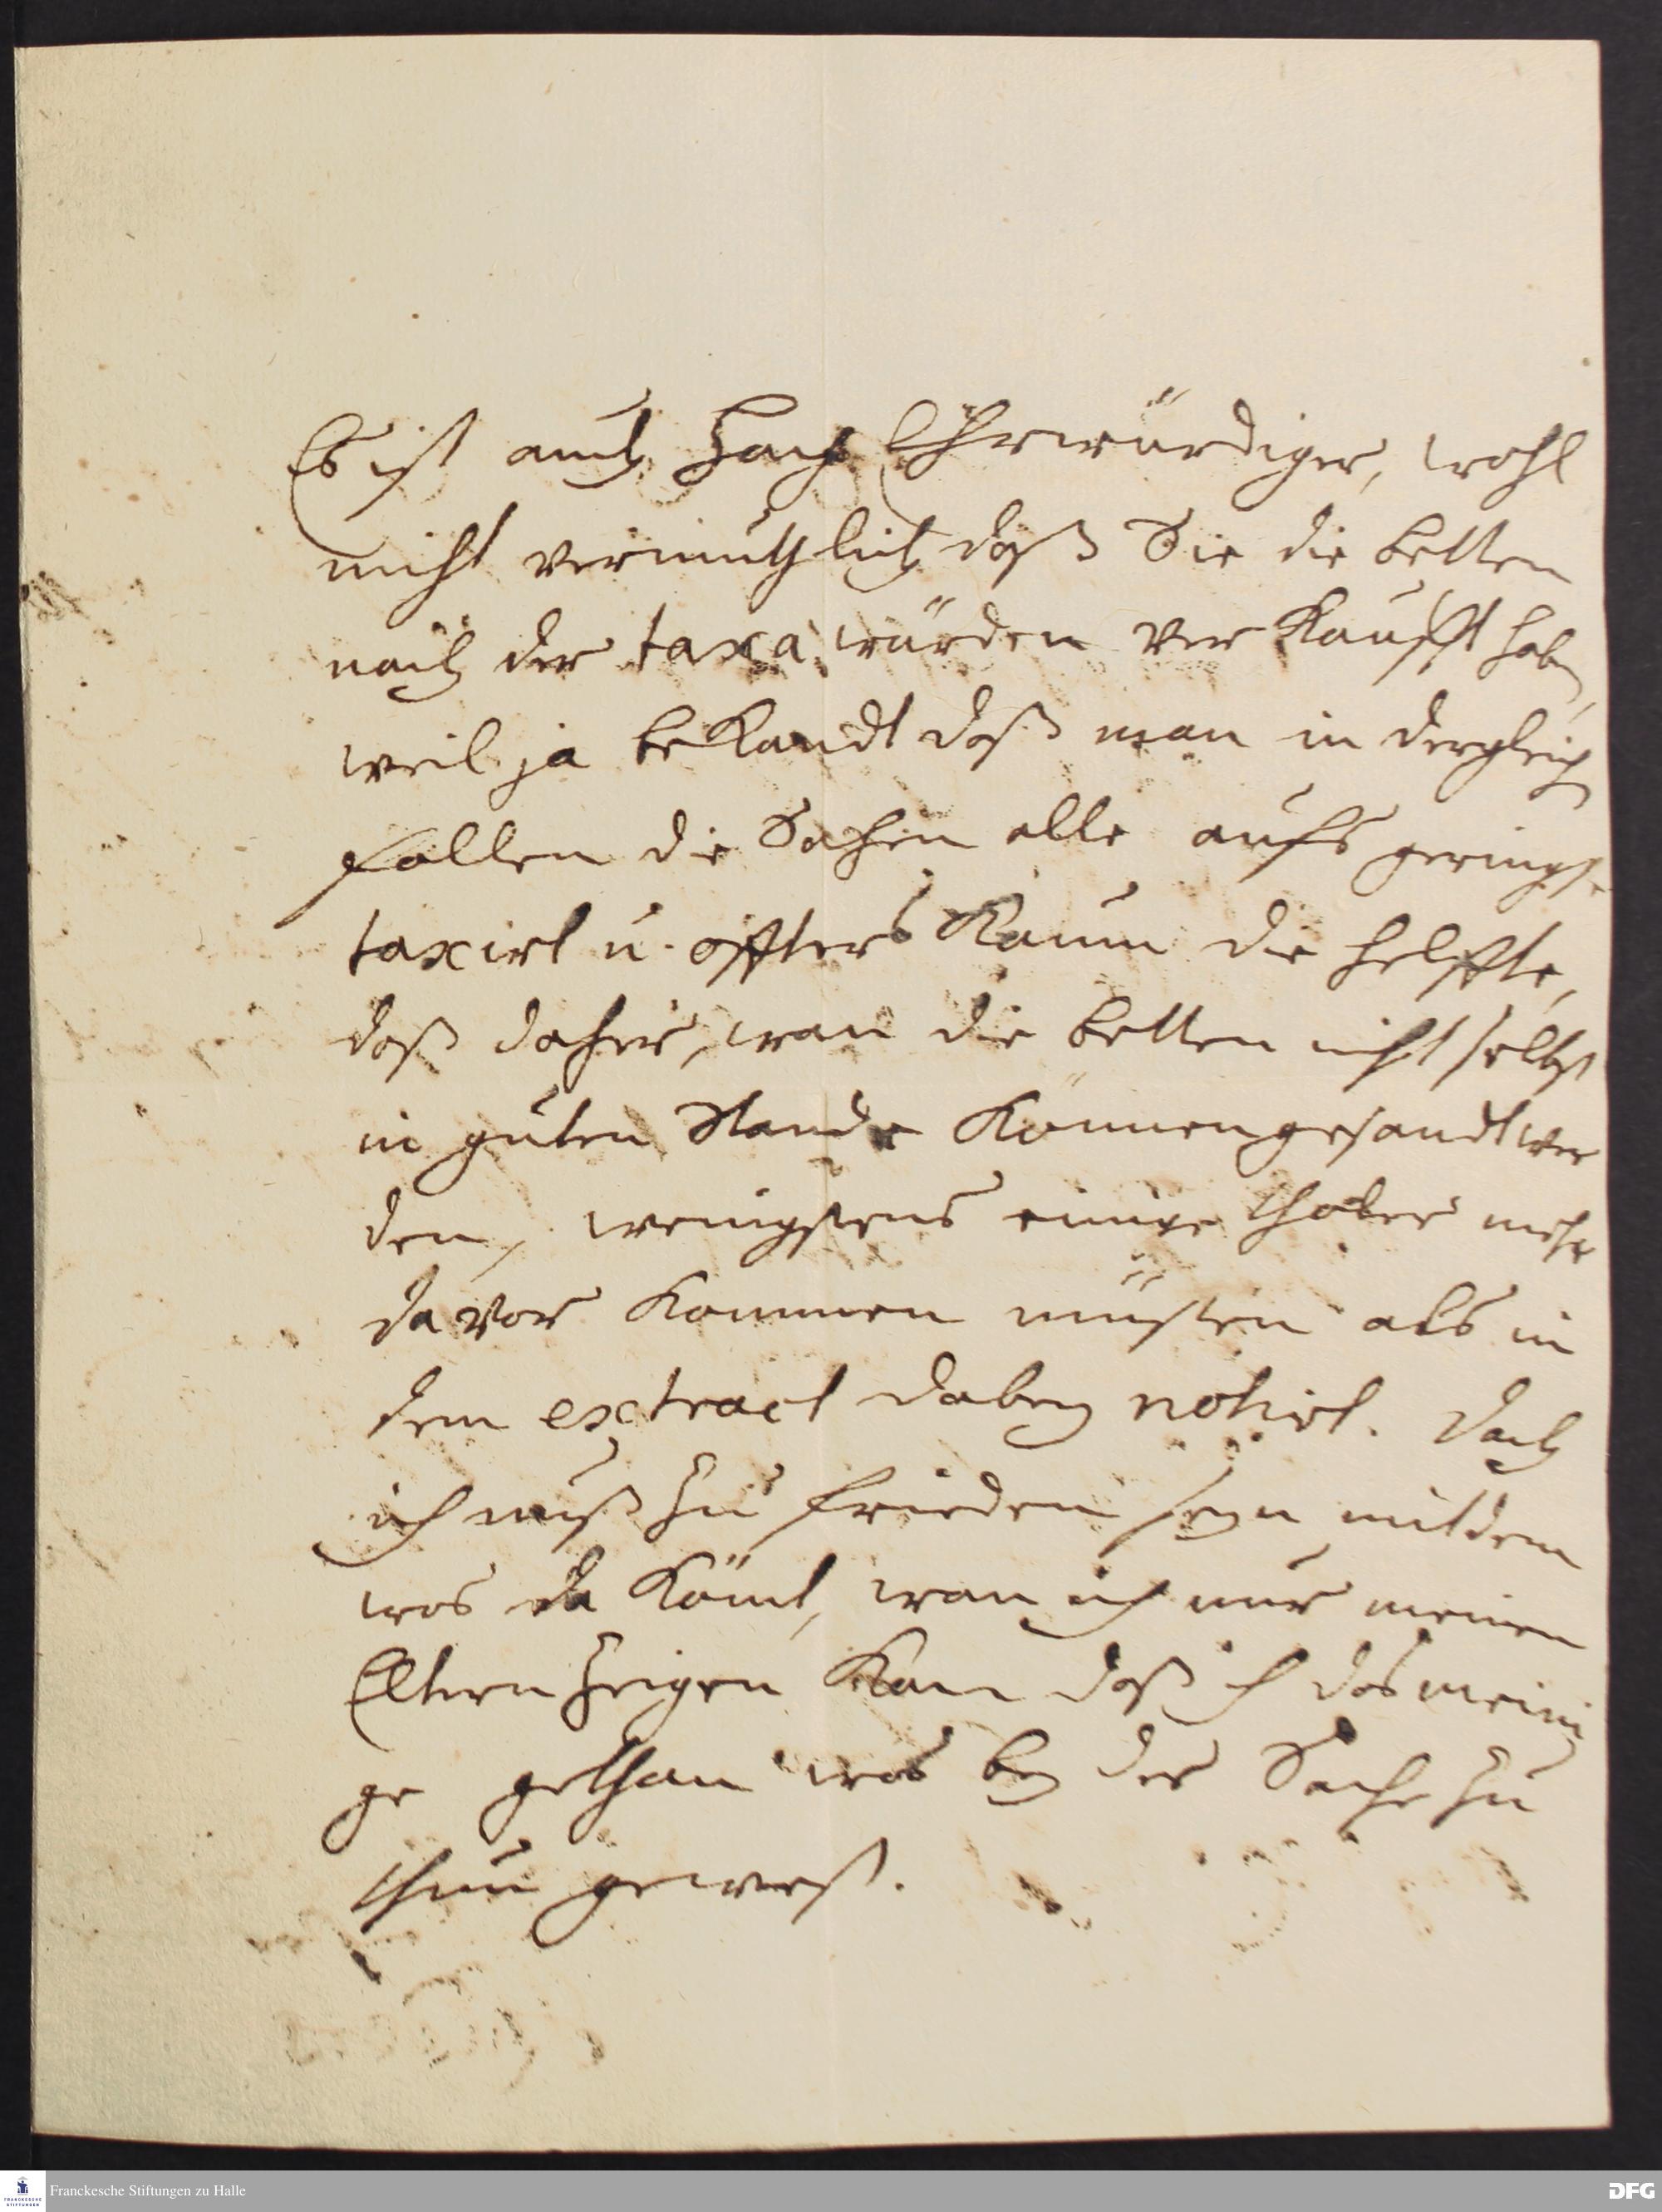 Es ist auch Hoch Ehrwürdiger, wohl
nicht vermuthlich daß Sie die betten
nach der taxa würden ver Kaufft haben,
weil ja beKandt daß man in dergleichen
fallen die Sachen alle aufs geringste
taxirt u. öffters Kaum die helffte,
daß daher, wan die betten nicht selbst
in guten Stande Können gesandt wer
den, wenigstens einige thaler mehr
davor Kommen müsten als in
dem extract dabey notirt. Doch
ich muß zu frieden seyn mit dem
was da Kömt, wan ich nur meinen
Eltern zeigen Kan daß ich das meini
ge gethan was bey der Sache zu
thun gewest.
Franckesche Stiftungen zu Halle
FRANCKESCHE STIFTUNGEN
DFG